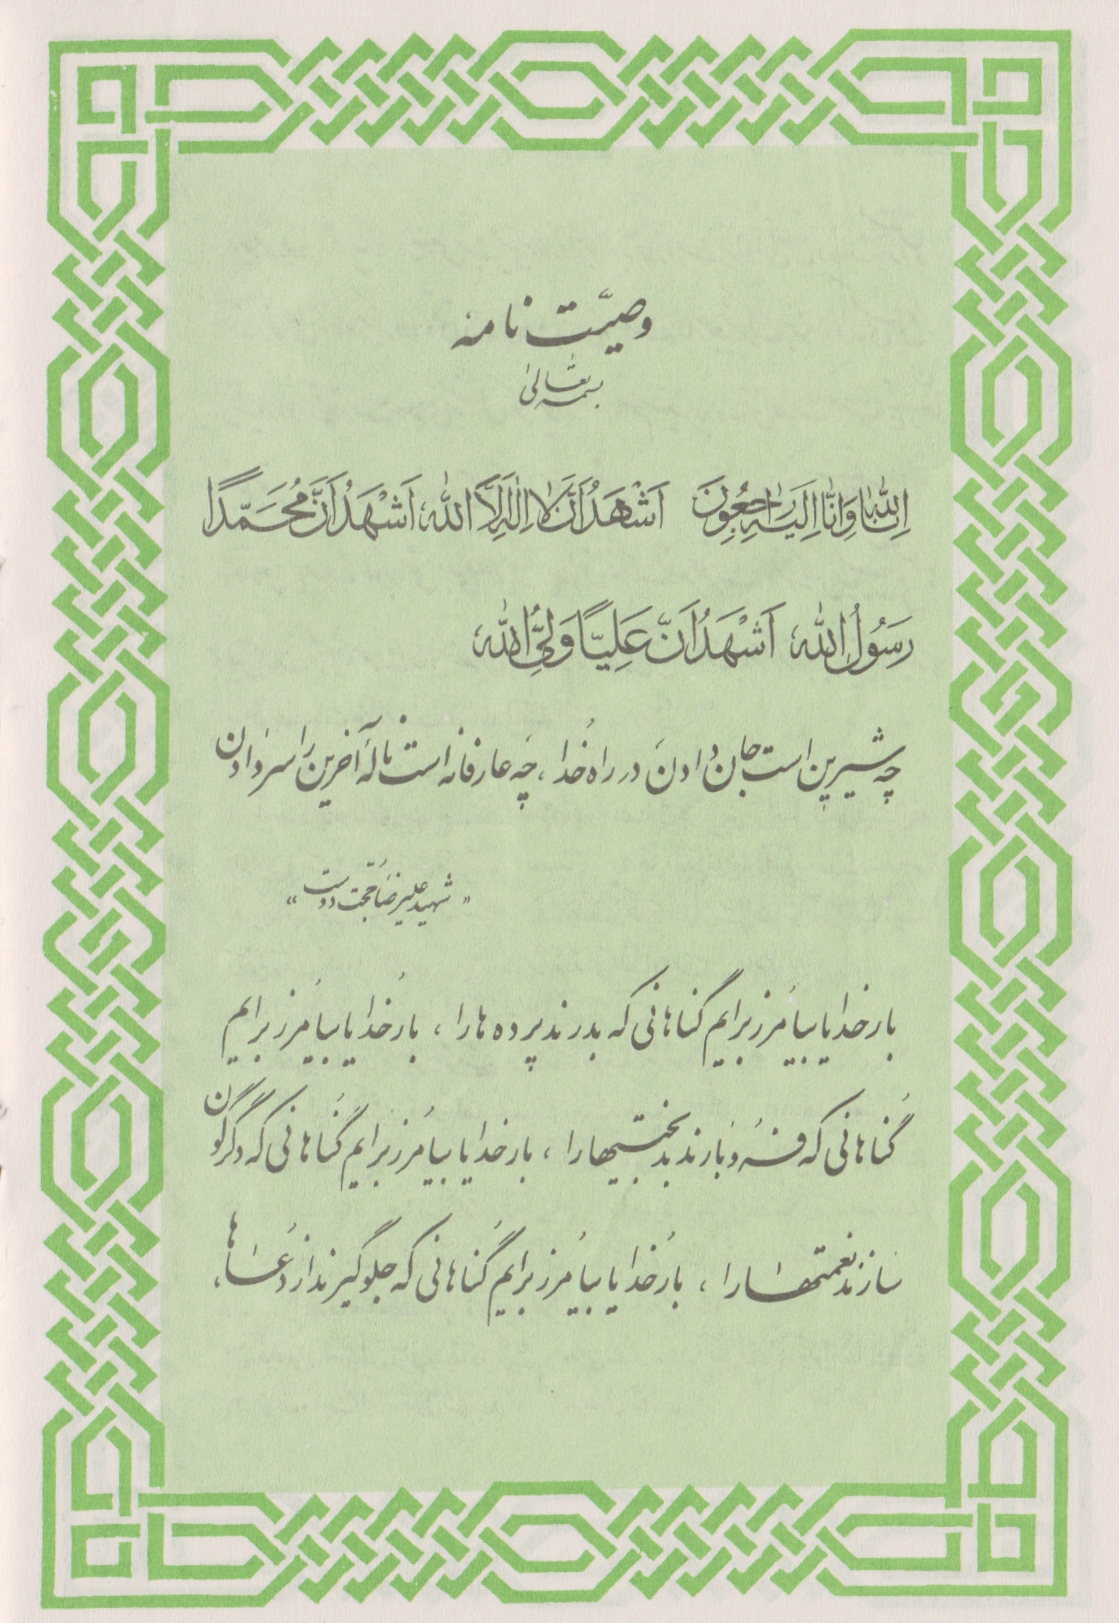 وصیّت نامه
بسمه تعالی
اِنّالِلّٰهِ وَاِنّااِلَیْهِ رَاجِعُونَ اَشْهَدُاَنْ لااِلٰهَ اِلَّا اللّٰه، اَشْهَدُاَنَّ مُحَمَّدًا
رَسُولُ اللّٰه، اَشْهَدُاَنَّ عَلِیًّا وَلِیُّ اللّٰه،
چه شیرین است جان دادن در راه خُدا، چه عارفانه است نالهٔ آخرین را سر دادن
«شهید علیرضا حجت دوست»
بارخدایا بیامُرز برایم گناهانی که بدرند پرده ها را، بارخُدایا بیامُرز برایم
گُناهانی که فرو بارند بدبختیها را، بارخدایا بیامُرز برایم گُناهانی که دگرگون
سازند نعمتها را، بارخُدایا بیامُرز برایم گُناهانی که جلوگیرند از دُعاها،